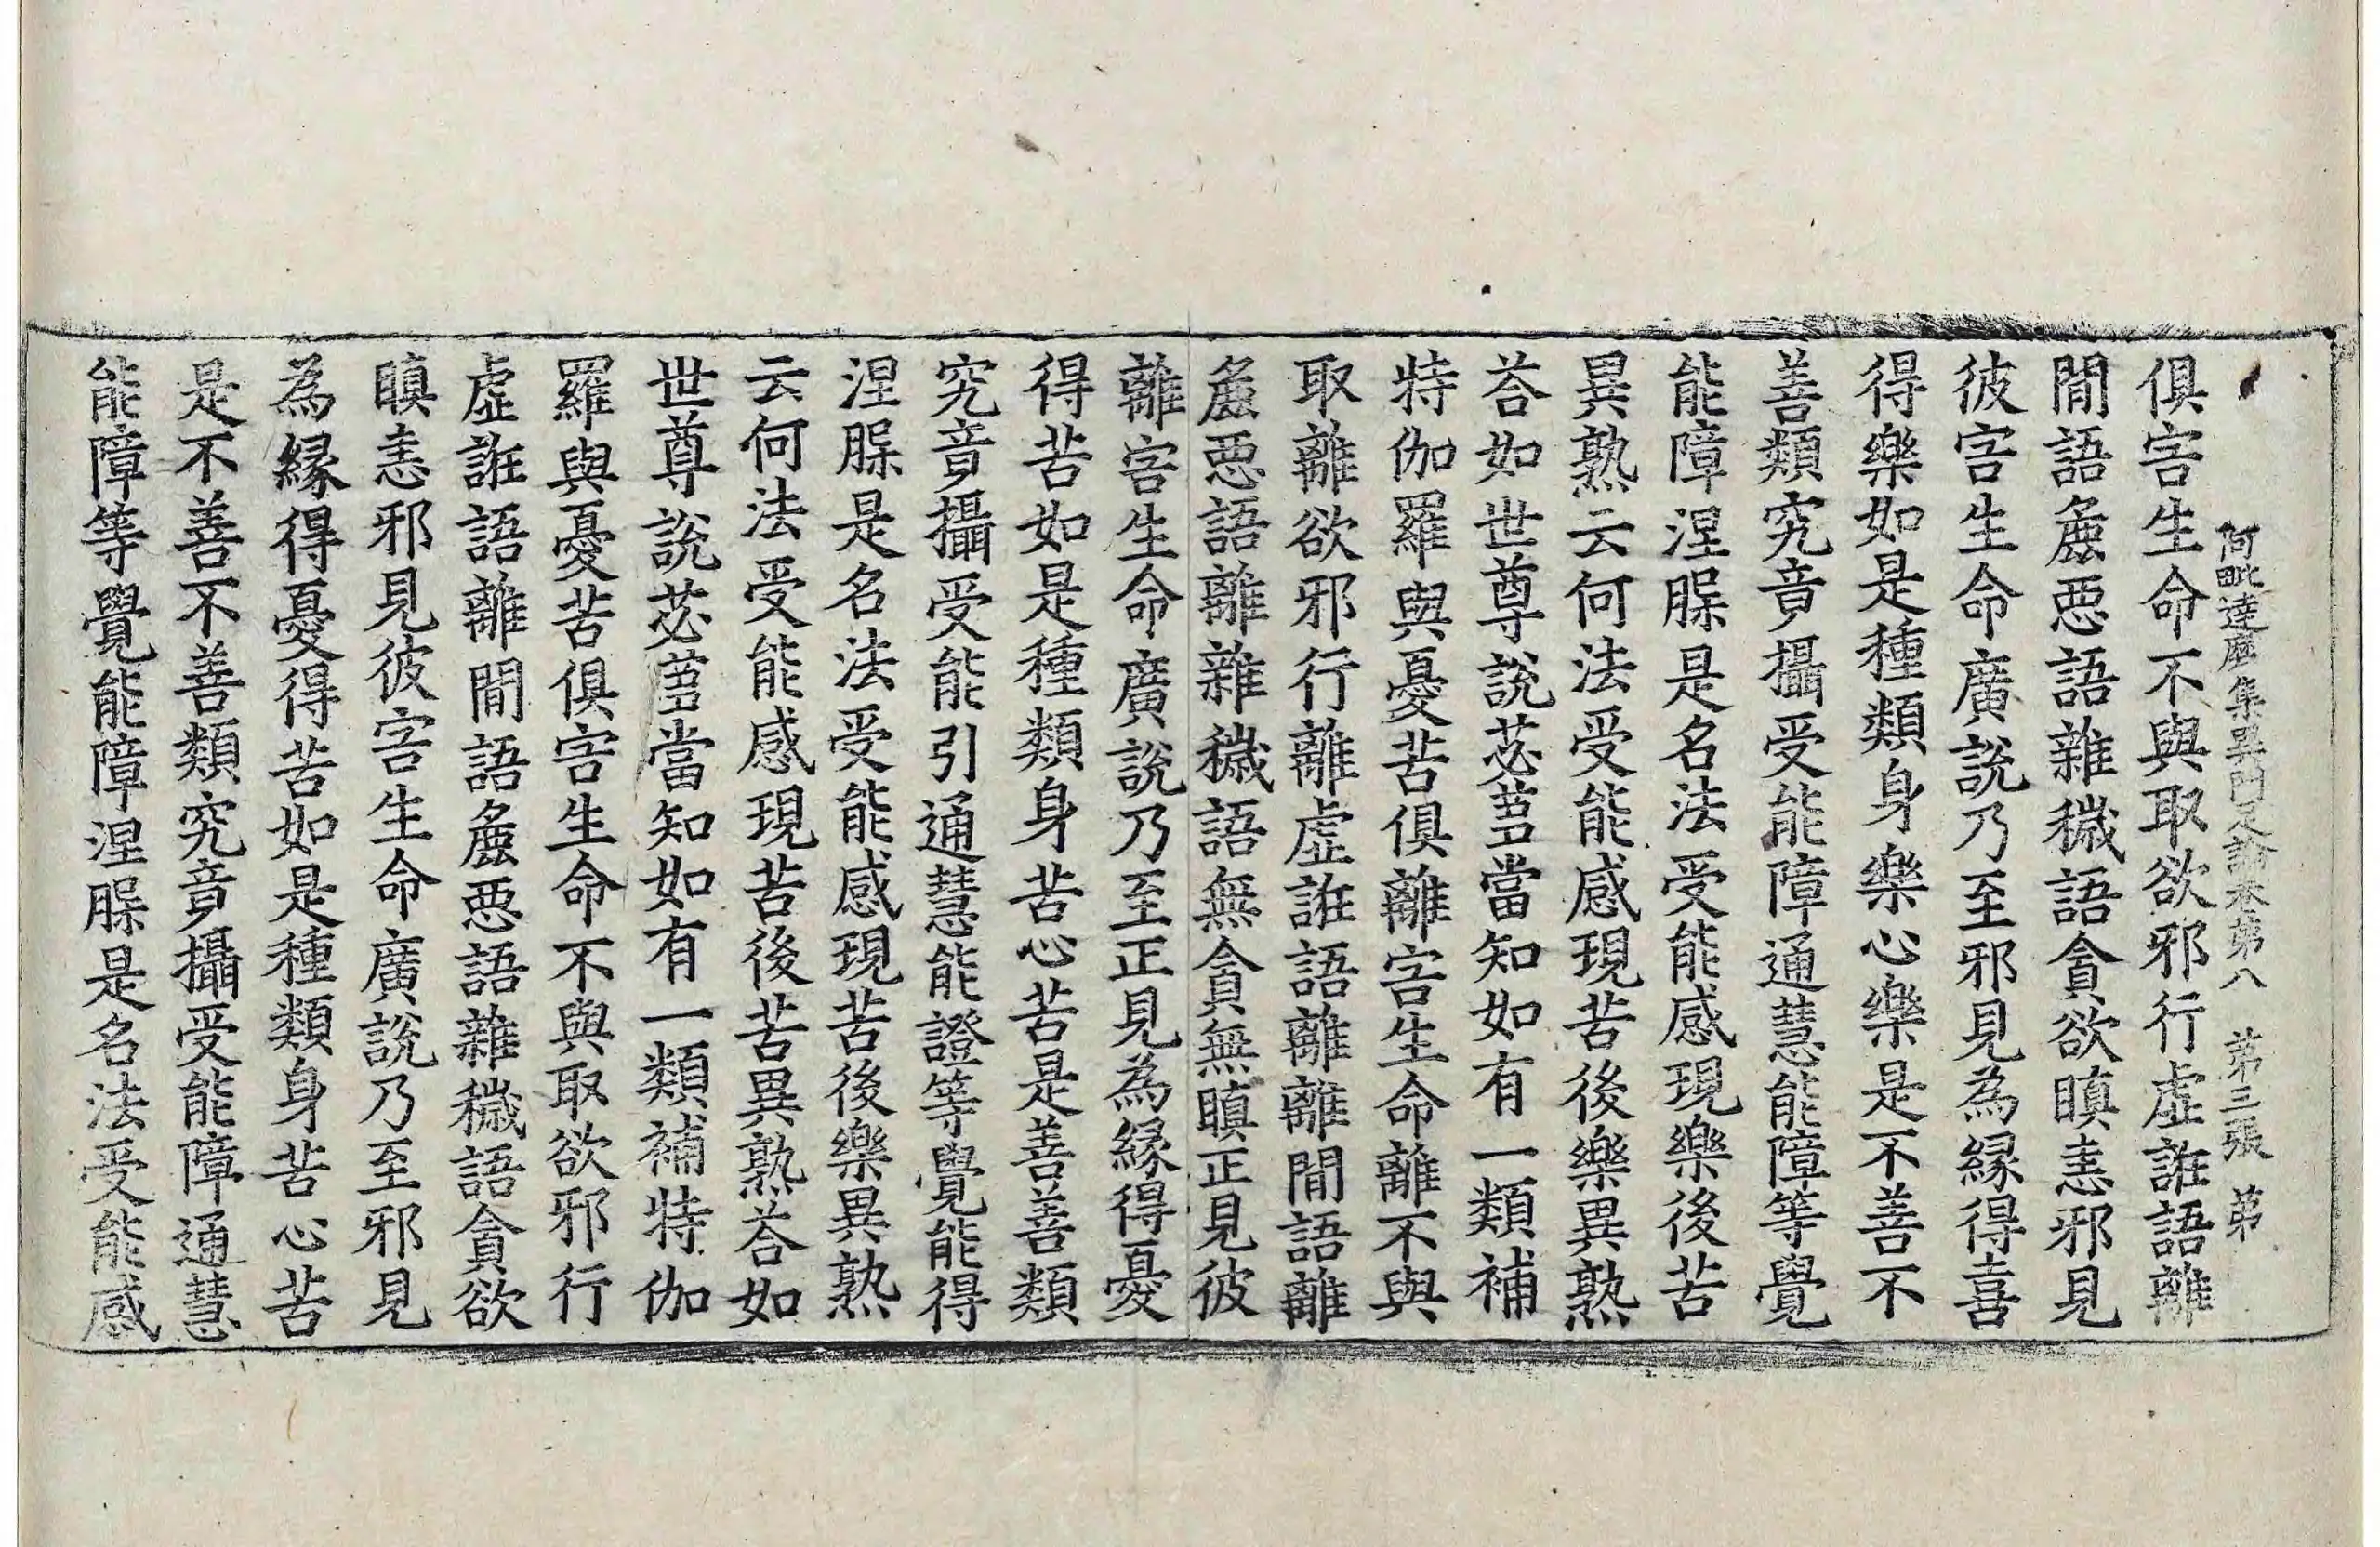 阿毗達磨集異門足論卷第八　第三張　弟
俱害生命不與取欲邪行虛誑語離
間語麁惡語雜穢語貪欲瞋恚邪見
彼害生命廣說乃至邪見為緣得喜
得樂如是種類身樂心樂是不善不
善類究竟攝受能障通慧能障等覺
能障涅槃是名法受能感現樂後苦
異熟云何法受能感現苦後樂異熟
荅如世尊說苾蒭當知如有一類補
特伽羅與憂苦俱離害生命離不與
取離欲邪行離虛誑語離離間語離
麁惡語離雜穢語無貪無瞋正見彼
離害生命廣說乃至正見為緣得憂
得苦如是種類身苦心苦是善善類
究竟攝受能引通慧能證等覺能得
涅槃是名法受能感現苦後樂異熟
云何法受能感現苦後苦異熟荅如
世尊說苾蒭當知如有一類補特伽
羅與憂苦俱害生命不與取欲邪行
虛誑語離間語麁惡語雜穢語貪欲
瞋恚邪見彼害生命廣說乃至邪見
為緣得憂得苦如是種類身苦心苦
是不善不善類究竟攝受能障通慧
能障等覺能障涅槃是名法受能感